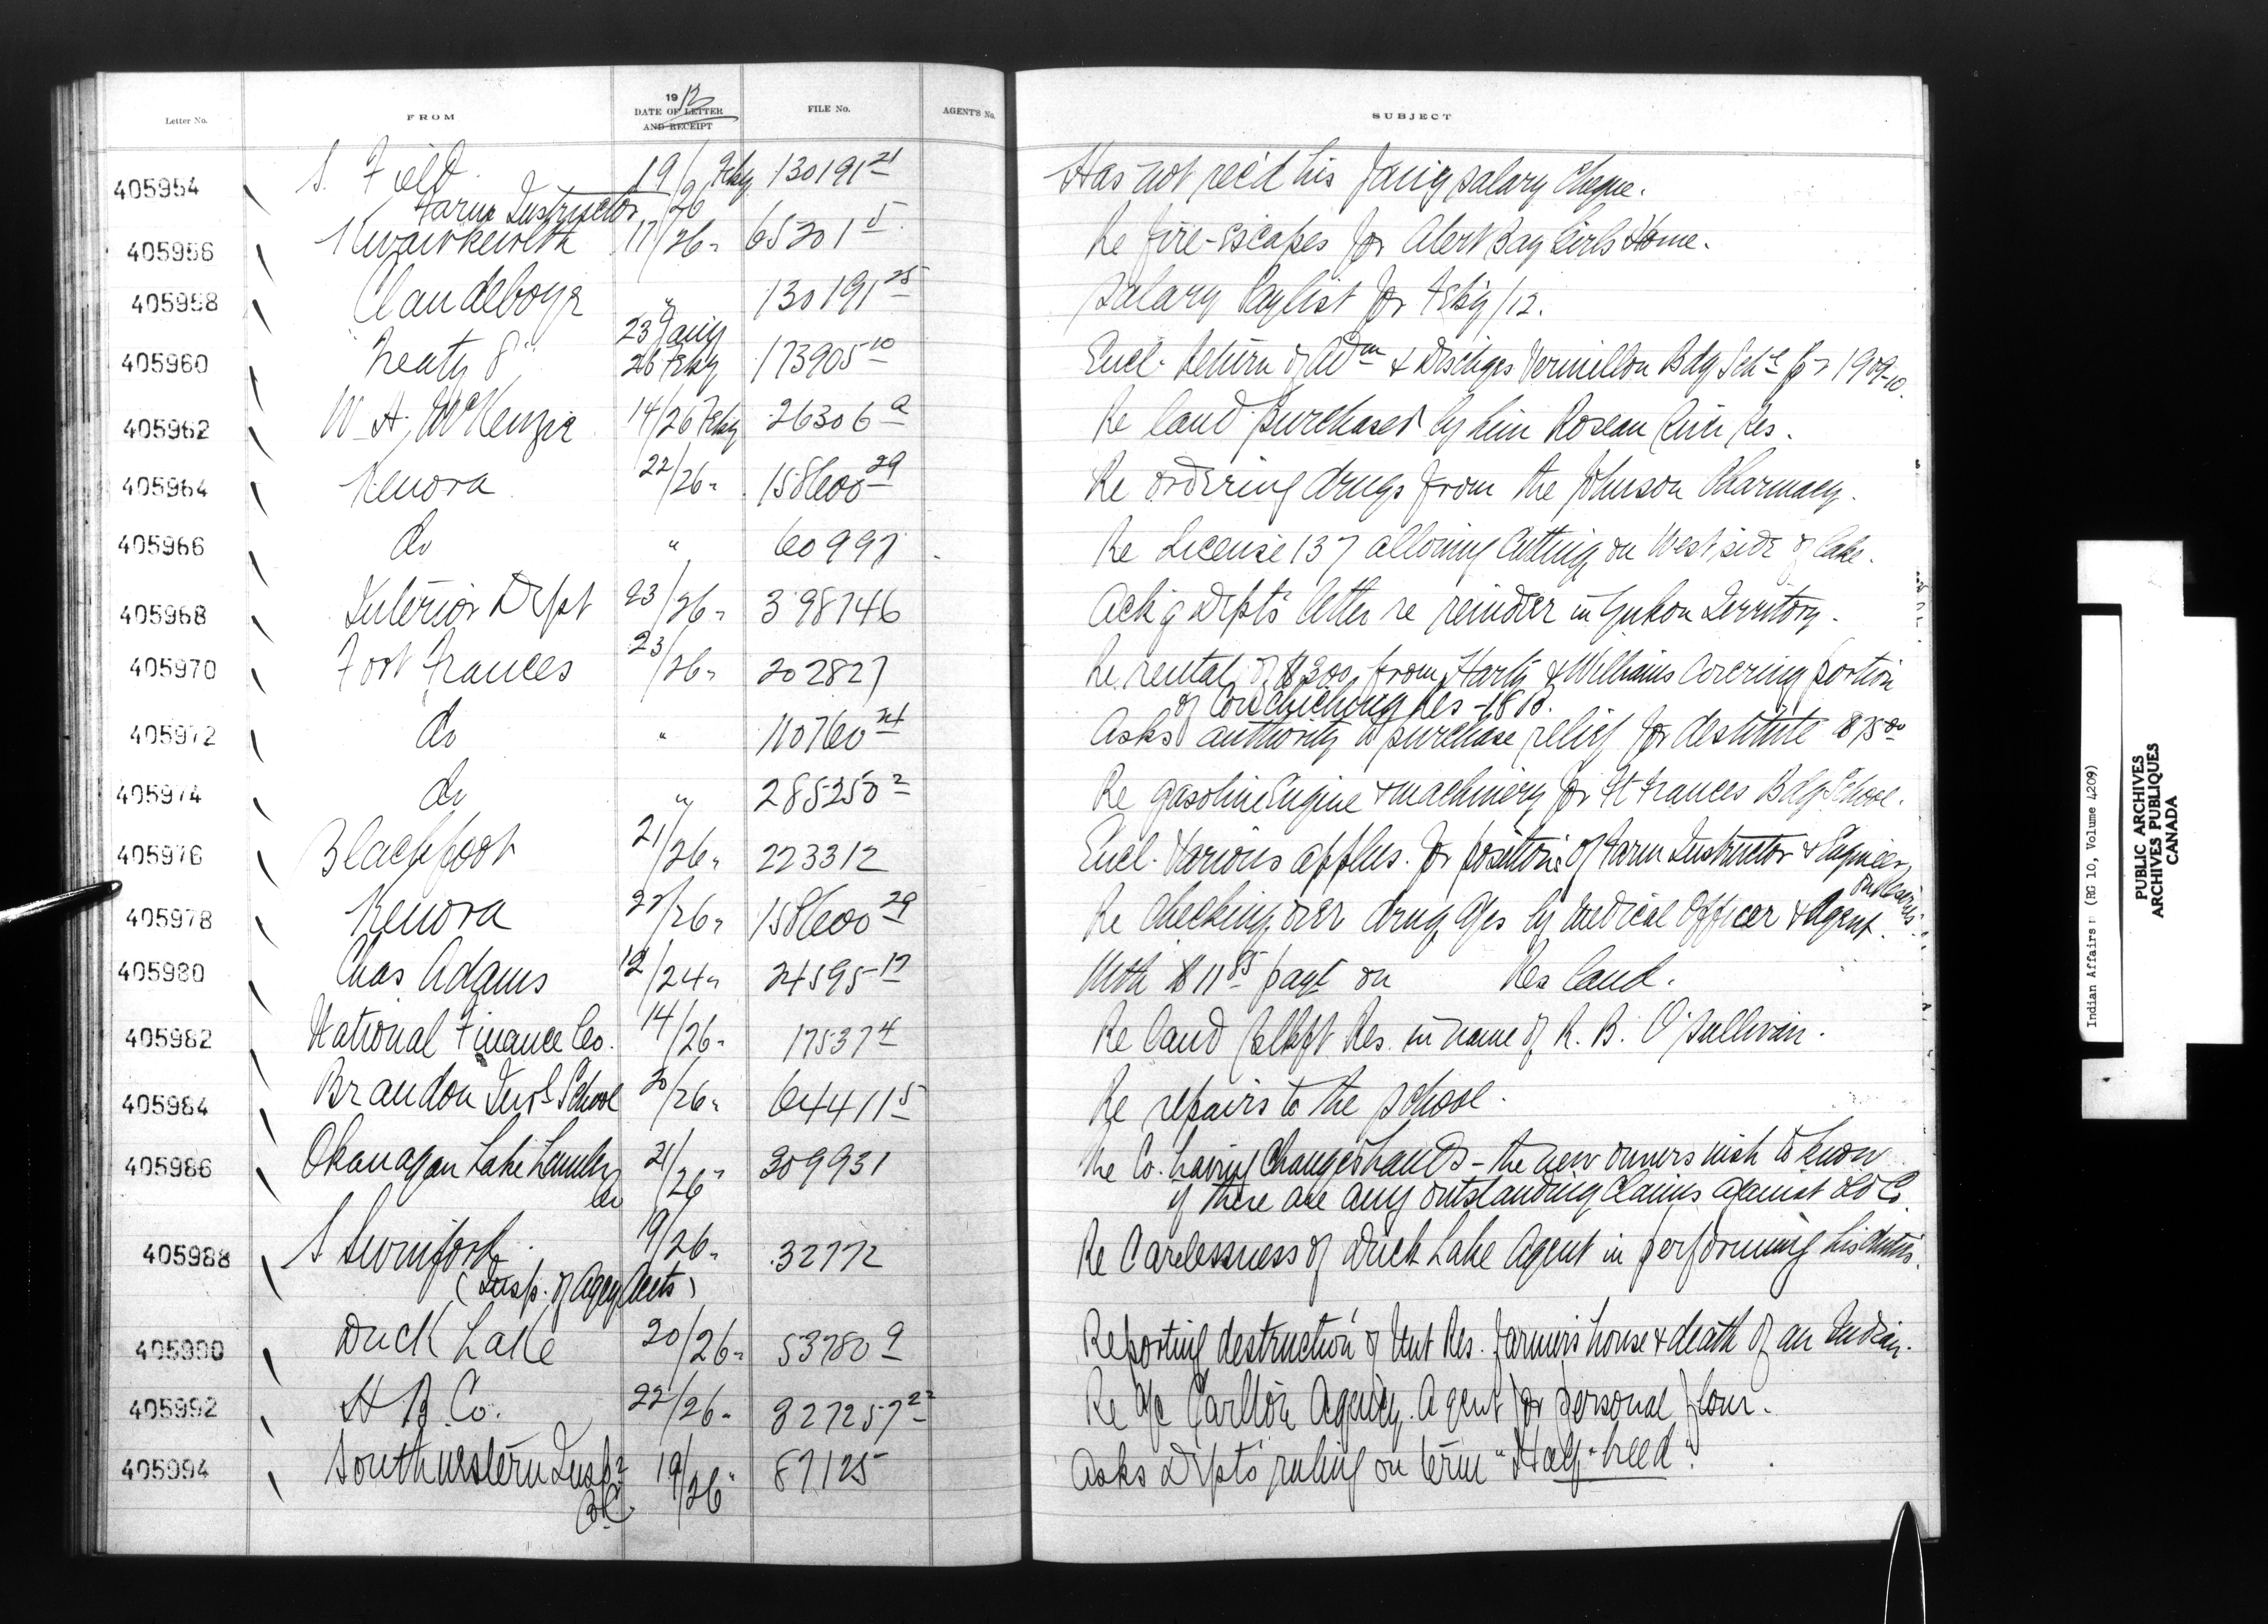 Letter No. FROM 1912 DATE OF LETTER AND RECEIPT FILE No. AGENT'S No. SUBJECT
405954 S. Field 19/26 Feby 130191-21 Has not rec'd his Jany salary cheque.
Farm Instructor
405956 Kwawkewlth 17/26 " 65201-5 Re fire-escapes for Alert Bay Girls Home.
405958 Clandeboye " 130191-25 Salary Paylist for Feby/12.
405960 Treaty 8 23 Jany 26 Feby 173905-10 Encl. Return of Adm & Dischges Vermillon Bdg Schl for 1909-10.
405962 W. A. McKenzie 14/26 Feby 26306 a Re land purchased by him Roseau River Res.
405964 Kenora 22/26 " 158600-29 Re ordering drugs from the Johnson Pharmacy.
405966 do " 60997 Re License 137 allowing cutting on West side of lake.
405968 Interior Dept 23/26 " 398746 Ack'g Dept's letter re reinder in Yukon Territory.
405970 Fort Frances 23/26 " 202827 Re rental of $200 from Harty & Williams covering portion
of Couchiching Res - 18 B.
405972 do " 110760 Asks authority to purchase relief for destitute $75.00
405974 do " 285250-2 Re gasoline Engine & machinery for Ft Frances Bdg School.
405976 Blackfoot 21/26 " 223312 Encl. various applns. for positions of Farm Instructor & Engineer
on Reserve.
405978 Kenora 22/26 " 158600-29 Re checking over drug a/cs by Medical Officer & Agent.
405980 Chas Adams 12/24 " 24595-17 With $11.85 payt on Res land.
405982 National Finance Co. 14/26 " 17537-4 Re land Blkft Res. in name of R. B. O'Sullivan.
405984 Brandon Indl School 20/26 " 64411-5 Re repairs to the school.
405986 Okanagan Lake Lumber Co 21/26 " 309931 The Co. having changed hands - the new owners wish to know
if there are any outstanding claims against old Co.
405988 S Swinford 19/26 " 32772 Re carelessness of Duck Lake Agent in performing his duties.
(Insp. of Agcy Accts)
405990 Duck Lake 20/26 " 53780-9 Reporting destruction of Res. farmer's house & death of an Indian.
405992 H B Co. 22/26 " 827257-22 Re a/c Carlton Agency. Agent for personal flour.
405994 Southwestern Insp. 19/26 " 87125 Asks Dept's ruling on term "Half-breed".
B.C.
Indian Affairs (RG 10, Volume 4209)
PUBLIC ARCHIVES
ARCHIVES PUBLIQUES
CANADA